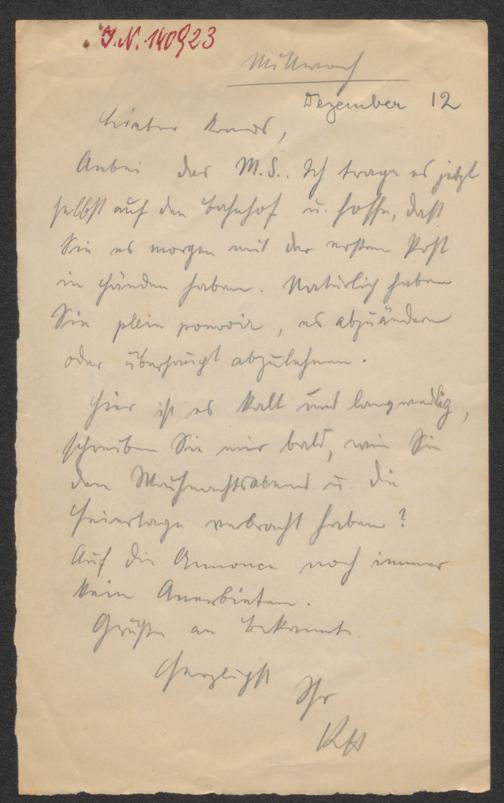 J.N. 140923
Mittwoch
Dezember 12
Lieber Kraus,
Anbei das M.S. Ich trage es jetzt
selbst auf den Bahnhof u. hoffe, daß
Sie es morgen mit der ersten Post
in Händen haben. Natürlich haben
Sie plein pouvoir, es abzuändern
oder überhaupt abzulehnen.
Hier ist es kalt und langweilig,
schreiben Sie mir bald, wie Sie
den Weihnachtsabend u. die
Feiertage verbracht haben?
Auf die Annonce noch immer
kein Anerbieten.
Grüße an Bekannte.
Herzlichst
Ihr